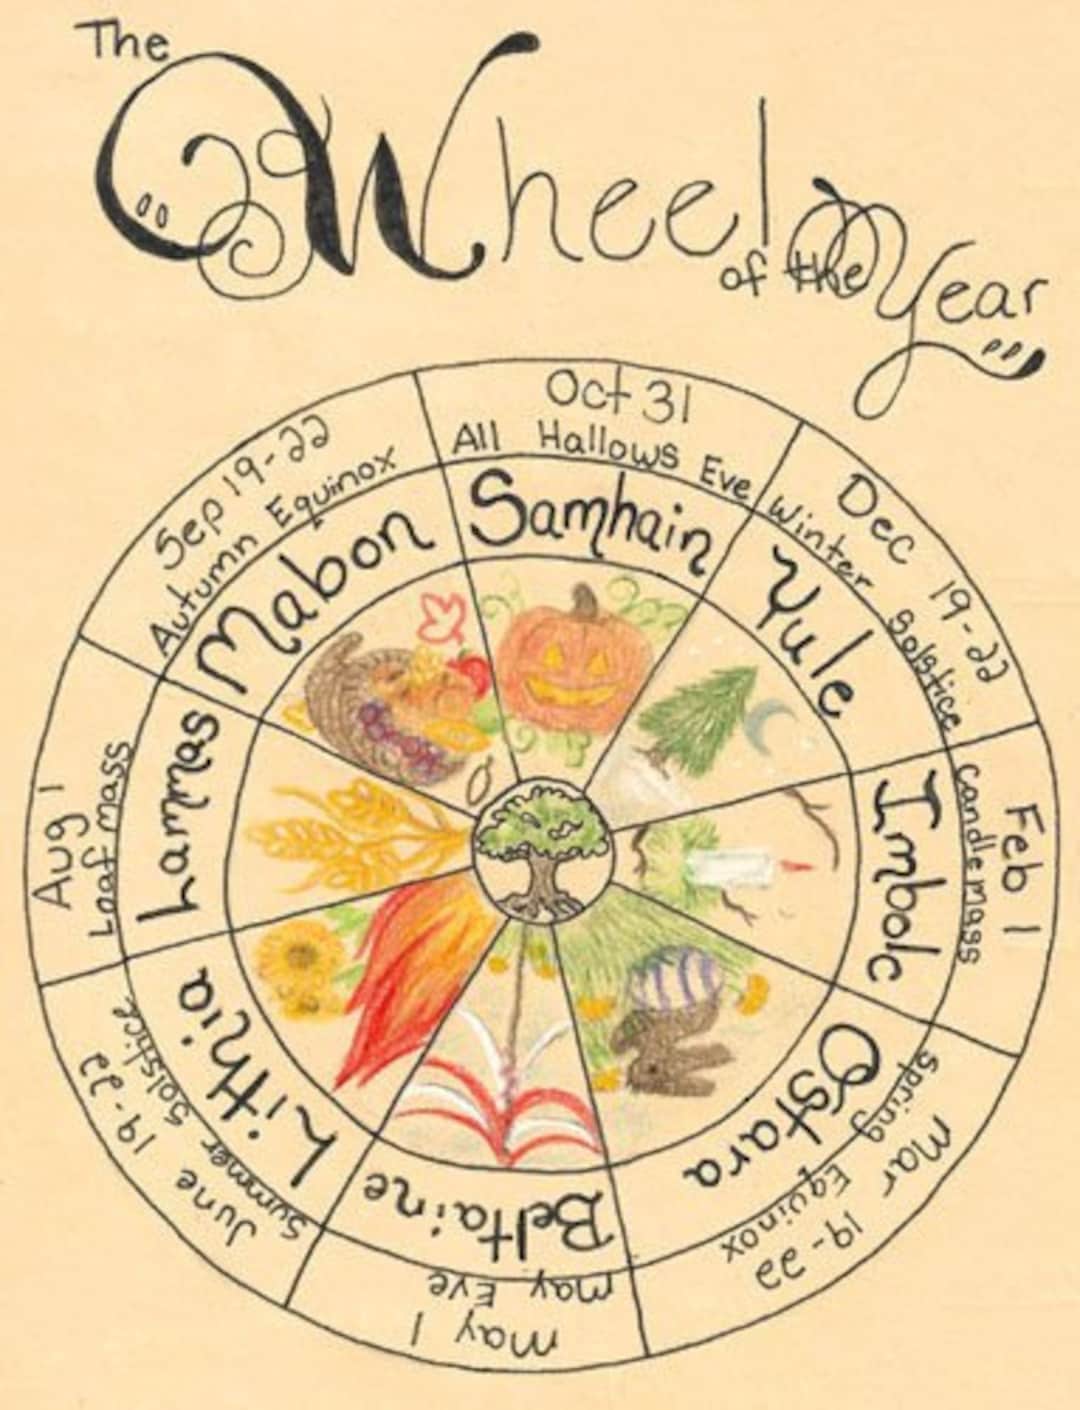 The
Wheel
of the
Year
Oct 31
All Hallows Eve
Samhain
Dec 19-22
Winter Solstice
Yule
Feb 1
Candlemass
Imbolc
Mar 19-22
Spring Equinox
Ostara
May 1
May Eve
Beltaine
June 19-22
Summer Solstice
Lithia
Aug 1
Loaf mass
Lammas
Sep 19-22
Autumn Equinox
Mabon